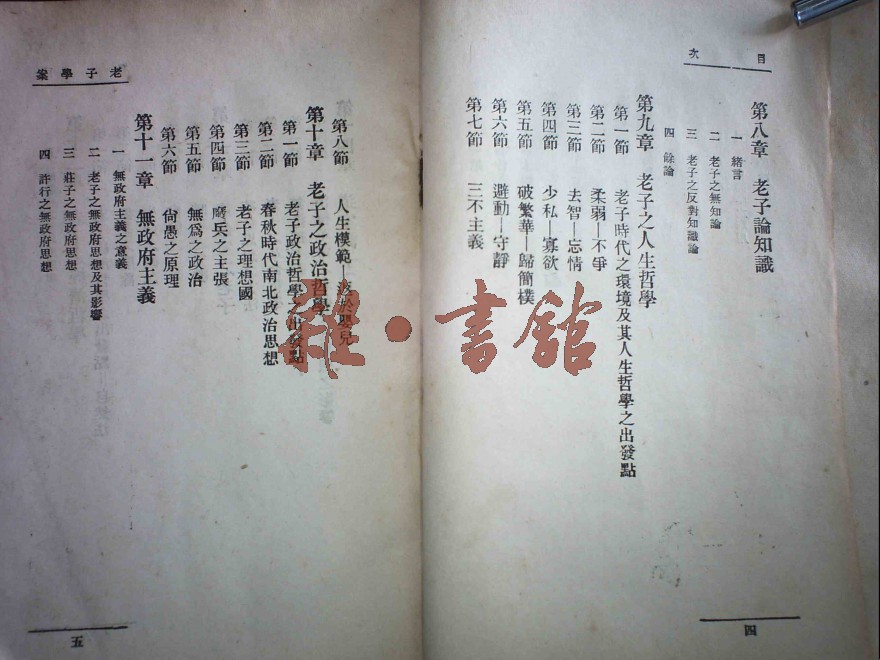 目次
第八章 老子論知識
一 緒言
二 老子之無知論
三 老子之反對知識論
四 餘論
第九章 老子之人生哲學
第一節 老子時代之環境及其人生哲學之出發點
第二節 柔弱—不爭
第三節 去智—忘情
第四節 少私—寡欲
第五節 破繁華—歸簡樸
第六節 避動—守靜
第七節 三不主義
四
老子學案
第八節 人生模範—
嬰兒
第十章 老子之政治哲學
第一節 老子政治哲學
出發點
第二節 春秋時代南北政治思想
第三節 老子之理想國
第四節
兵之主張
第五節 無爲之政治
第六節 尙愚之原理
第十一章 無政府主義
一 無政府主義之意義
二 老子之無政府思想及其影響
三 莊子之無政府思想
四 許行之無政府思想
五
雜·書館